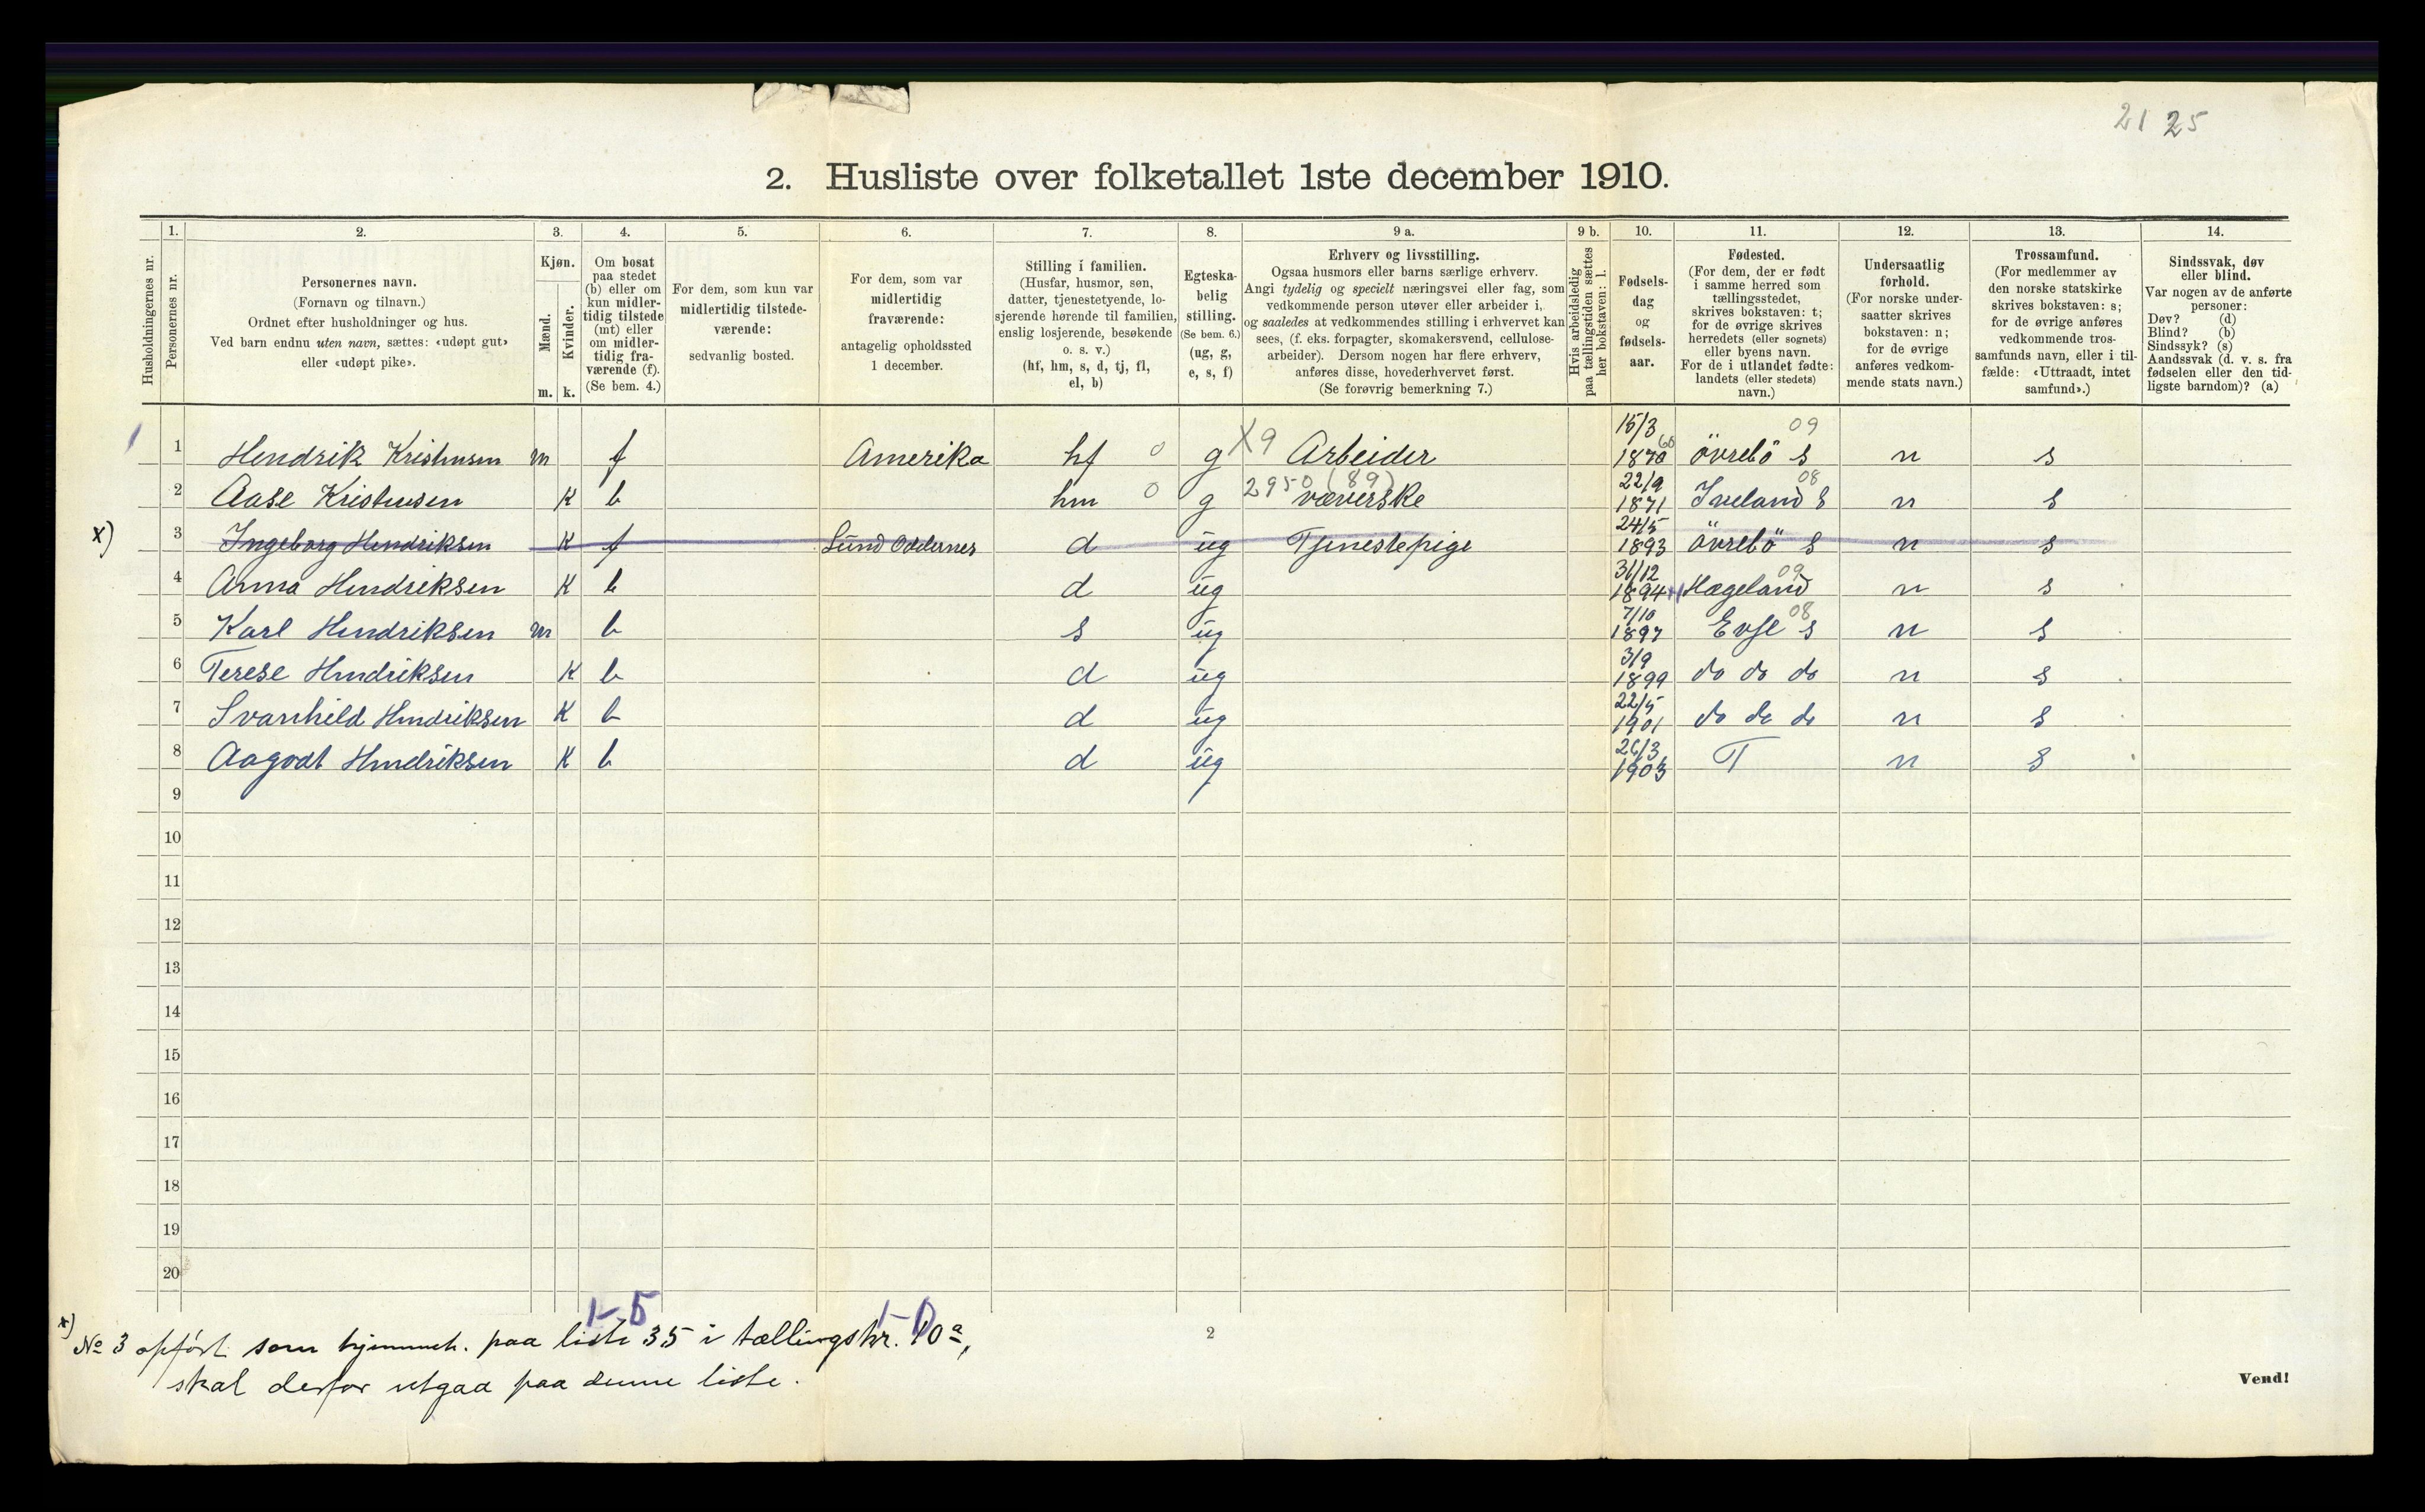 21 25
2. Husliste over folketallet 1ste december 1910.
1. 2. 3. 4. 5. 6. 7. 8. 9 a. 9 b. 10. 11. 12. 13. 14.
Husholdningernes nr.
Personernes nr.
Personernes navn.
(Fornavn og tilnavn.)
Ordnet efter husholdninger og hus.
Ved barn endnu uten navn, sættes: «udøpt gut»
eller «udøpt pike».
Kjøn.
Mænd.
Kvinder.
m. k.
Om bosat
paa stedet
(b) eller om
kun midler-
tidig tilstede
(mt) eller
om midler-
tidig fra-
værende (f).
(Se bem. 4.)
For dem, som kun var
midlertidig tilstede-
værende:
sedvanlig bosted.
For dem, som var
midlertidig
fraværende:
antagelig opholdssted
1 december.
Stilling i familien.
(Husfar, husmor, søn,
datter, tjenestetyende, lo-
sjerende hørende til familien,
enslig losjerende, besøkende
o. s. v.)
(hf, hm, s, d, tj, fl,
el, b)
Egteska-
belig
stilling.
(Se bem. 6.)
(ug, g,
e, s, f)
Erhverv og livsstilling.
Ogsaa husmors eller barns særlige erhverv.
Angi tydelig og specielt næringsvei eller fag, som
vedkommende person utøver eller arbeider i,
og saaledes at vedkommendes stilling i erhvervet kan
sees, (f. eks. forpagter, skomakersvend, cellulose-
arbeider). Dersom nogen har flere erhverv,
anføres disse, hovederhvervet først.
(Se forøvrig bemerkning 7.)
Hvis arbeidsledig
paa tællingstiden sættes
her bokstaven: l.
Fødsels-
dag
og
fødsels-
aar.
Fødested.
(For dem, der er født
i samme herred som
tællingsstedet,
skrives bokstaven: t;
for de øvrige skrives
herredets (eller sognets)
eller byens navn.
For de i utlandet fødte:
landets (eller stedets)
navn.)
Undersaatlig
forhold.
(For norske under-
saatter skrives
bokstaven: n;
for de øvrige
anføres vedkom-
mende stats navn.)
Trossamfund.
(For medlemmer av
den norske statskirke
skrives bokstaven: s;
for de øvrige anføres
vedkommende tros-
samfunds navn, eller i til-
fælde: «Uttraadt, intet
samfund».)
Sindssvak, døv
eller blind.
Var nogen av de anførte
personer:
Døv? (d)
Blind? (b)
Sindssyk? (s)
Aandssvak (d. v. s. fra
fødselen eller den tid-
ligste barndom)? (a)
1 Hendrik Kristensen m f Amerika hf 0 g X9 Arbeider 15/3 1870 68 övrebö s 09 n s
2 Aase Kristensen K b hm 0 g 2950 (89) væverske 22/9 1871 Iveland s 08 n s
x) 3 Ingeborg Hendriksen K f Lund Oddernes d ug Tjenestepige 24/5 1893 övrebö s n s
4 Anna Hendriksen K b d ug 31/12 1894 Hægeland 09 n s
5 Karl Hendriksen m b s ug 7/10 1897 Evje s 08 n s
6 Terese Hendriksen K b d ug 3/9 1899 do do do n s
7 Svanhild Hendriksen K b d ug 22/5 1901 do do do n s
8 Aagodt Hendriksen K b d ug 26/3 1903 T n s
9
10
11
12
13
14
15
16
17
18
19
20
1-5 1-0
x) No 3 opført som hjemmeh. paa liste 35 i tællingskr. 10a,
skal derfor utgaa paa denne liste.
2
Vend!